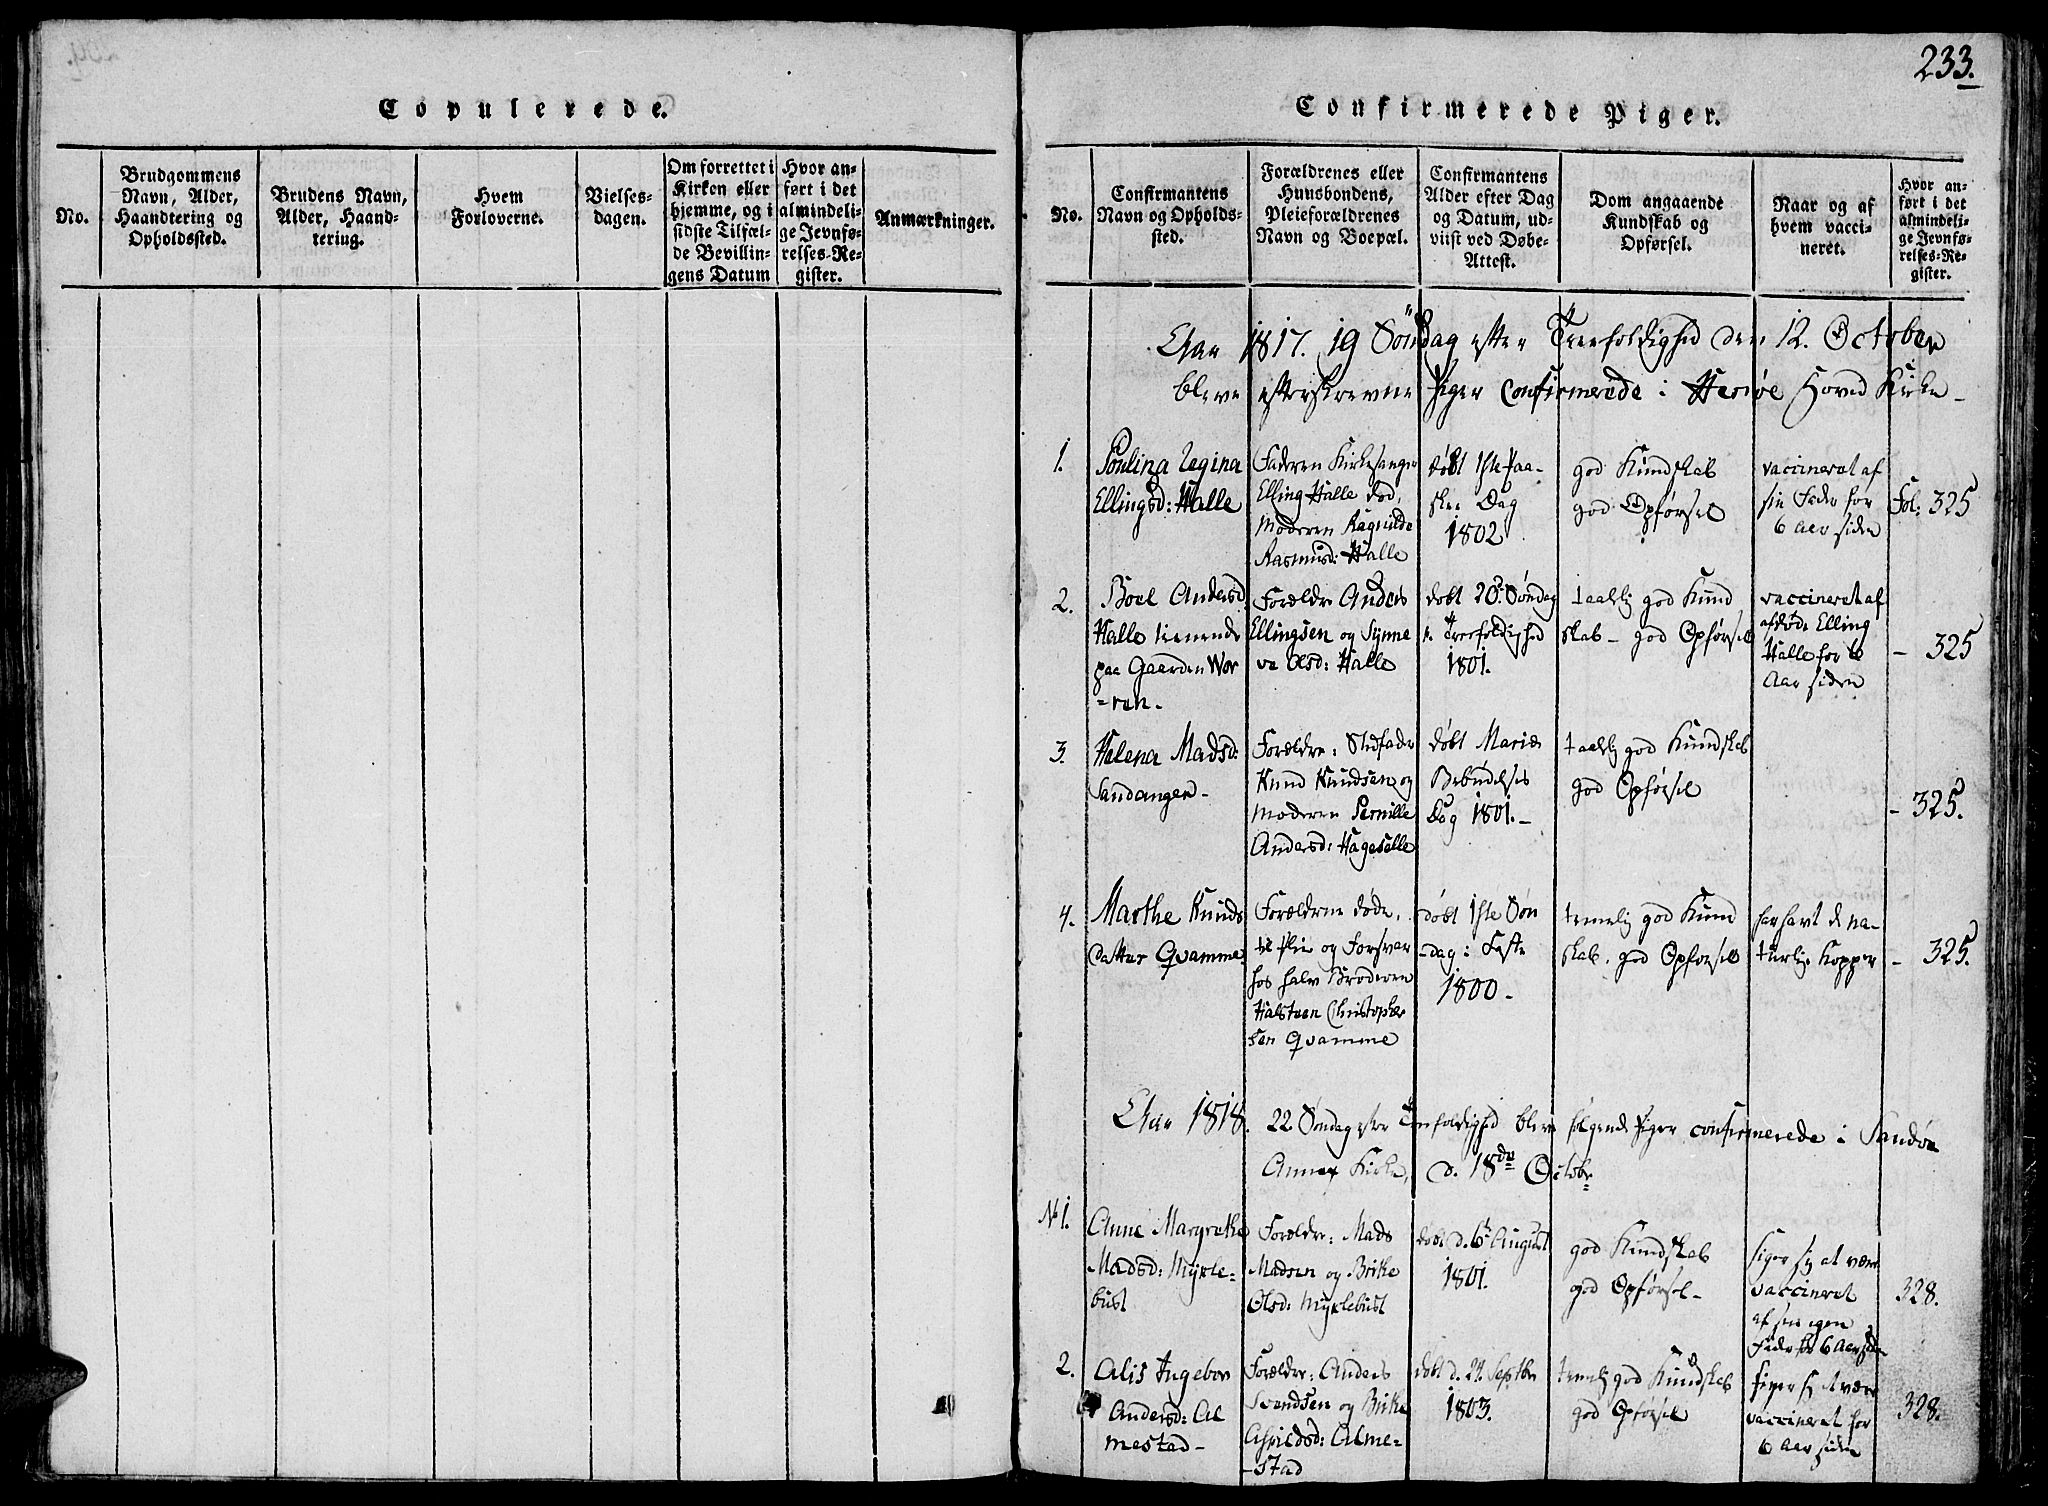 Copulerede.
No.
Brudgommens
Navn, Alder,
Haandtering og
Opholdssted.
Brudens Navn,
Alder, Haand-
tering.
Hvem
Forloverne.
Vielses-
dagen.
Om forrettet i
Kirken eller
hjemme, og i
sidste Tilfæl-
de Bevillin-
gens Datum
Hvor an-
ført i det
almindeli-
ge Jevnfø-
relses-Re-
gister.
Anmærkninger.
233.
Confirmerede Piger.
No.
Confirmantens
Navn og Opholds-
sted.
Forældrenes eller
Huusbondens,
Pleieforældrenes
Navn og Boepæl.
Confirmantens
Alder efter Dag
og Datum, ud-
viist ved Døbe-
Attest.
Dom angaaende
Kundskab og
Opførsel.
Naar og af
hvem vacci-
neret.
Hvor an-
ført i det
almindeli-
ge Jevnfø-
relses-Re-
gister.
1817. 19 Søndag efter Treefoldighed den 12. October
bleve efterskrevne Piger Confirmerede i Herrøe Hoved Kirke
1.
Poulina Regina
Ellingsd: Halle
Faderen Kirkesanger
Elling Halle død,
Moderen Ragnilde
Rasmusd: Halle
døbt 1ste Paa-
ske Dag
1802
god Kundskab
god Opførsel
vaccineret af
sin Fader for
6 Aar siden
Fol: 325
2.
Boel Andersd
Halle tienende
paa Gaarden Vor
=ren.
Forældre Anders
Ellingsen og Synne
va Olsd: Halle
døbt 20. Søndag
e. Treefoldighed
1801.
taalelig god Kund
skab - god Opførsel
vaccineret af
afdøde Elling
Halle for 6
Aar siden
- 325
3.
Helena Madsd:
Sandanger -
Forældre: Stedfader
Knud Knudsen og
Moderen Pernille
Andersd: Hageselle
døbt Mariæ
Bebudelses
Dag 1801. -
taalelig god Kundskab
god Opførsel
- 325.
4.
Marthe Knuds
datter Qvamme
Forældrene døde,
til Pleie og Forsvar
hos halv Broderen
Halsteen Christopher
sen Qvamme
døbt 1ste Søn
-dag i Faste
1800 -
temelig god Kund
skab, god Opførsel
har havt de na-
turlige Kopper
- 325.
1818. 22 Søndag efter Treefoldighed bleve følgende Piger confirmerede i Sandøe
Annex Kirke, d. 18de Octobr
No 1.
Anne Margrethe
Madsd: Myxle-
bust
Forældre: Mads
Madsen og Brithe
Olsd: Myxlebust
døbt d. 6 August
1801.
god Kundskab
god Opførsel -
siger sig at være
vaccineret
af sin egen
Fader for 6 Aar siden
328.
2.
Alis Ingebor
Andersd: Al
mestad -
Forældre: Anders
Svendsen og Brithe
Aspildsd: Alme-
-stad
døbt d. 24 Septbr
1803.
temelig god Kundskab
god Opførsel
siger sig at være
vaccineret for
6 Aar siden
328.